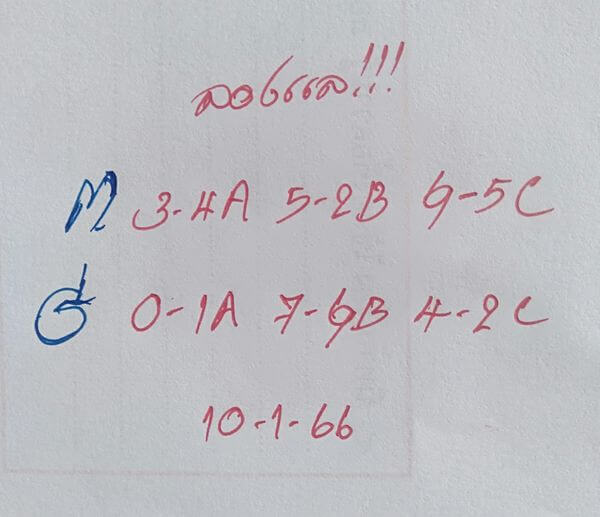 ลองแล!!!
M 3-4A 5-2B 9-5C
0-1A 7-9B 4-2C
10-1-66